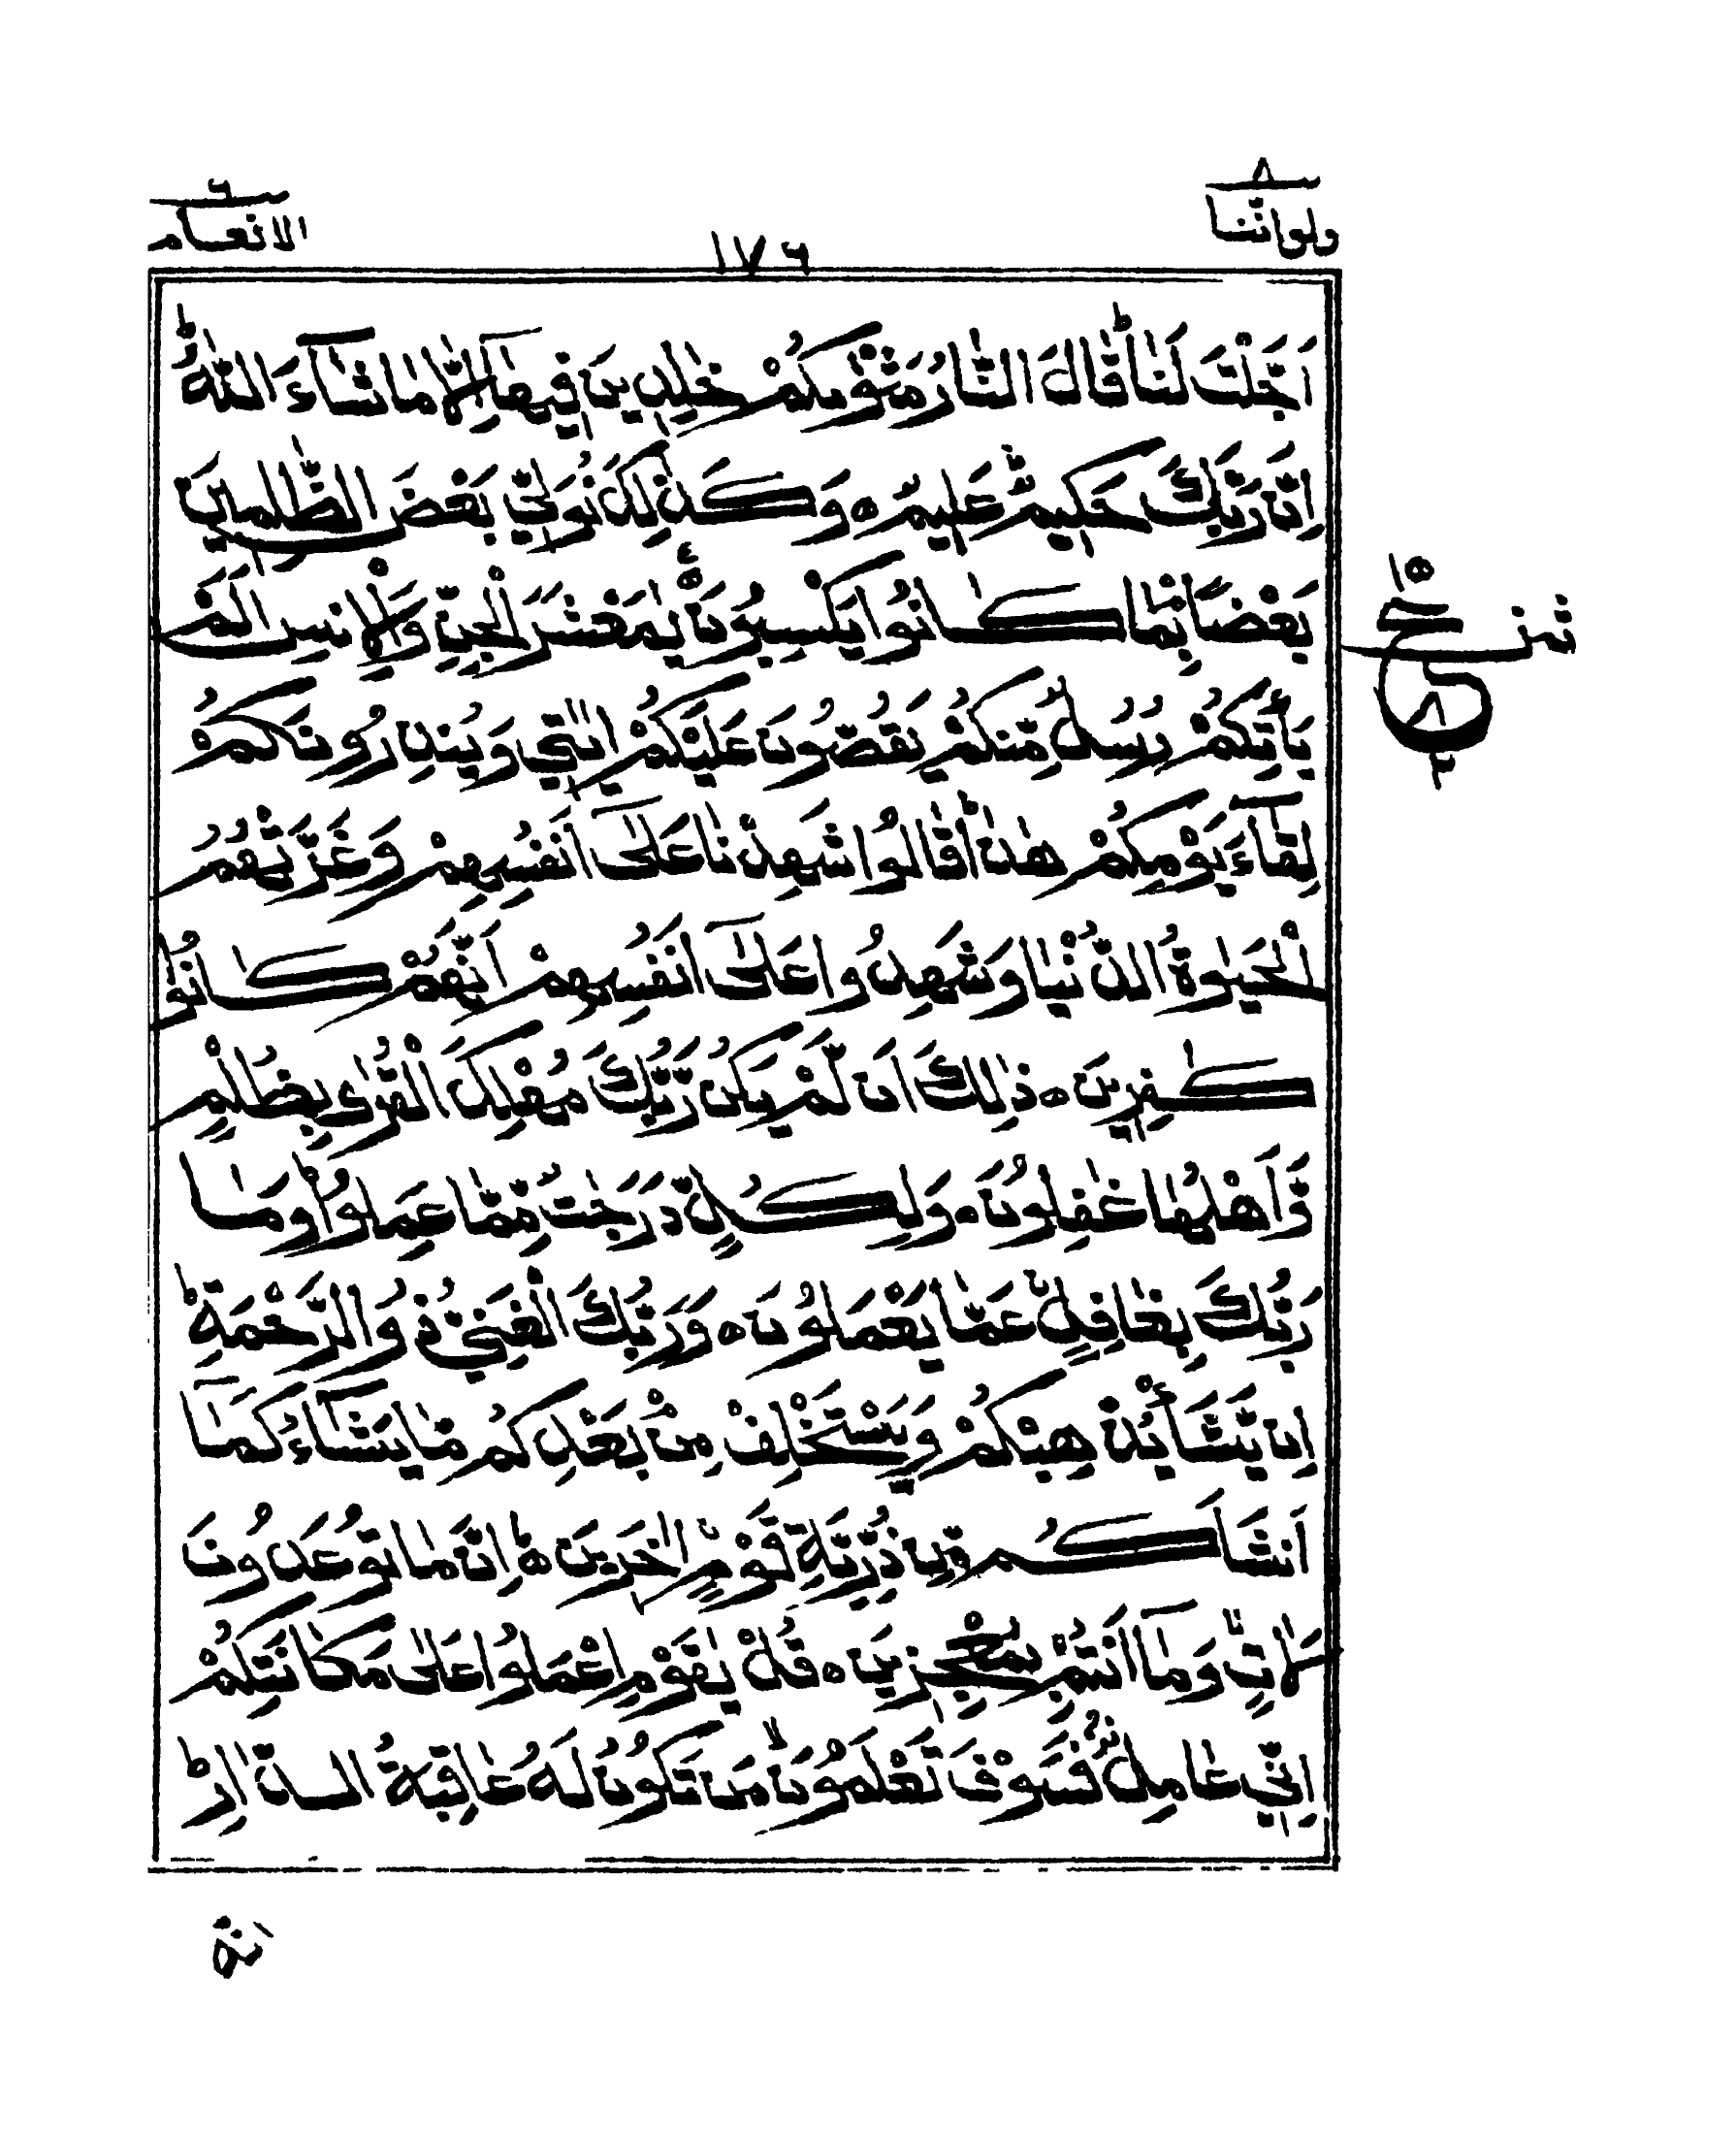 ولواننا ٨
١٧٦
الانعام ٦
اَجَّلْتَ لَنَا ؕ قَالَ النَّارُ مَثْوٰىكُمْ خٰلِدِيْنَ فِيْهَاۤ اِلَّا مَا شَآءَ اللّٰهُ ؕ
اِنَّ رَبَّكَ حَكِيْمٌ عَلِيْمٌ ه وَكَذٰلِكَ نُوَلِّيْ بَعْضَ الظّٰلِمِيْنَ
بَعْضًۢا بِمَا كَانُوْا يَكْسِبُوْنَ ه يٰمَعْشَرَ الْجِنِّ وَالْاِنْسِ اَلَمْ
يَأْتِكُمْ رُسُلٌ مِّنْكُمْ يَقُصُّوْنَ عَلَيْكُمْ اٰيٰتِيْ وَيُنْذِرُوْنَكُمْ
لِقَآءَ يَوْمِكُمْ هٰذَا ؕ قَالُوْا شَهِدْنَا عَلٰۤى اَنْفُسِهِمْ وَغَرَّتْهُمُ
الْحَيٰوةُ الدُّنْيَا وَشَهِدُوْا عَلٰۤى اَنْفُسِهِمْ اَنَّهُمْ كَانُوْا
كٰفِرِيْنَ ه ذٰلِكَ اَنْ لَّمْ يَكُنْ رَّبُّكَ مُهْلِكَ الْقُرٰى بِظُلْمٍ
وَّاَهْلُهَا غٰفِلُوْنَ ه وَلِكُلٍّ دَرَجٰتٌ مِّمَّا عَمِلُوْا ؕ وَمَا
رَبُّكَ بِغَافِلٍ عَمَّا يَعْمَلُوْنَ ه وَرَبُّكَ الْغَنِيُّ ذُو الرَّحْمَةِ ؕ
اِنْ يَّشَأْ يُذْهِبْكُمْ وَيَسْتَخْلِفْ مِنْۢ بَعْدِكُمْ مَّا يَشَآءُ كَمَاۤ
اَنْشَاَكُمْ مِّنْ ذُرِّيَّةِ قَوْمٍ اٰخَرِيْنَ ؕ اِنَّ مَا تُوْعَدُوْنَ
لَاٰتٍ ۙ وَمَاۤ اَنْتُمْ بِمُعْجِزِيْنَ ه قُلْ يٰقَوْمِ اعْمَلُوْا عَلٰى مَكَانَتِكُمْ
اِنِّيْ عَامِلٌ ۚ فَسَوْفَ تَعْلَمُوْنَ ۙ مَنْ تَكُوْنُ لَهٗ عَاقِبَةُ الدَّارِ ؕ
انه